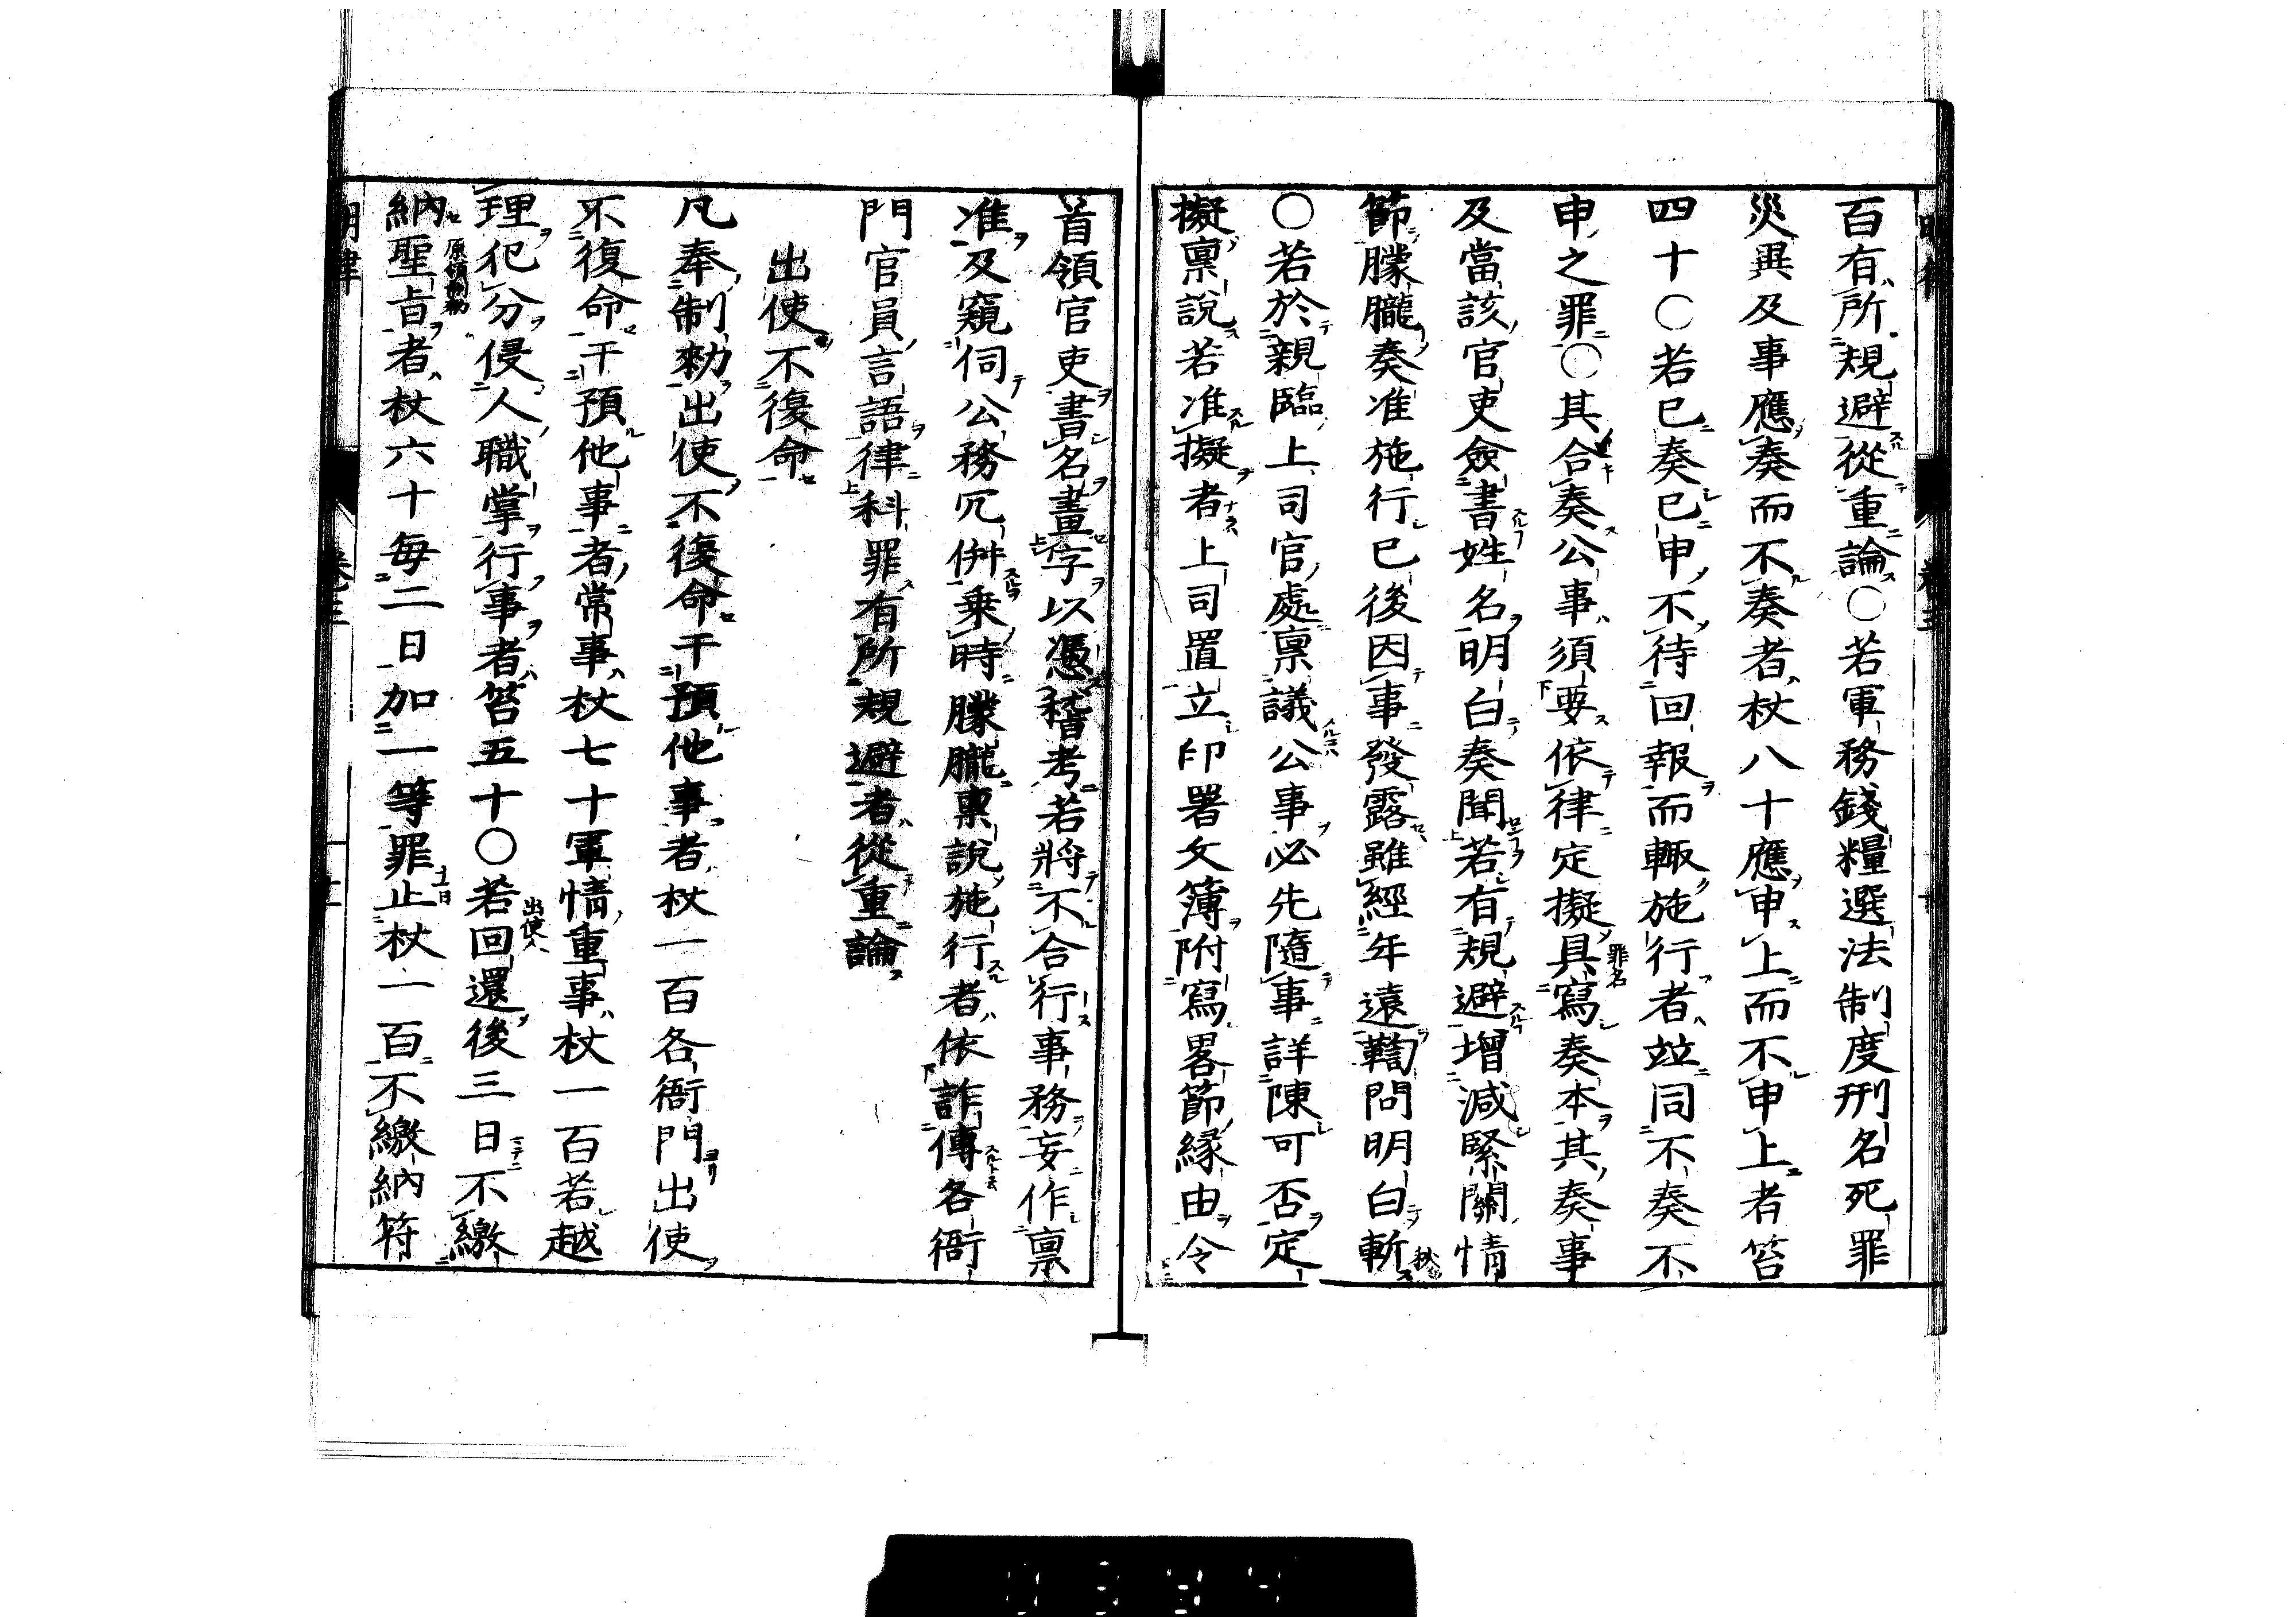 百有所規避從重論〇若軍務錢糧選法制度刑名死罪
災異及事應奏而不奏者杖八十應申上而不申上者笞
四十〇若已奏已申不待回報而輙施行者竝同不奏不
申之罪〇其合奏公事須要依律定擬具寫奏本其奏事
罪名
及當該官吏僉書姓名明白奏聞若有規避增減緊關情
節朦朧奏准施行已後因事發露雖經年遠鞫問明白斬
〇若於親臨上司官處稟議公事必先隨事詳陳可否定
擬稟說若准擬者上司置立印署文簿附寫畧節緣由令
首領官吏書名畫字以憑稽考若將不合行事務妄作稟
准及窺伺公務冗併乗時朦朧稟說施行者依詐傳各衙
門官員言語律科罪有所規避者從重論
出使不復命
凡奉制勑出使不復命干預他事者杖一百各衙門出使
不復命干預他事者常事杖七十軍情重事杖一百若越
理犯分侵人職掌行事者笞五十〇若回還後三日不繳
出使人
納聖旨者杖六十每二日加一等罪止杖一百不繳納符